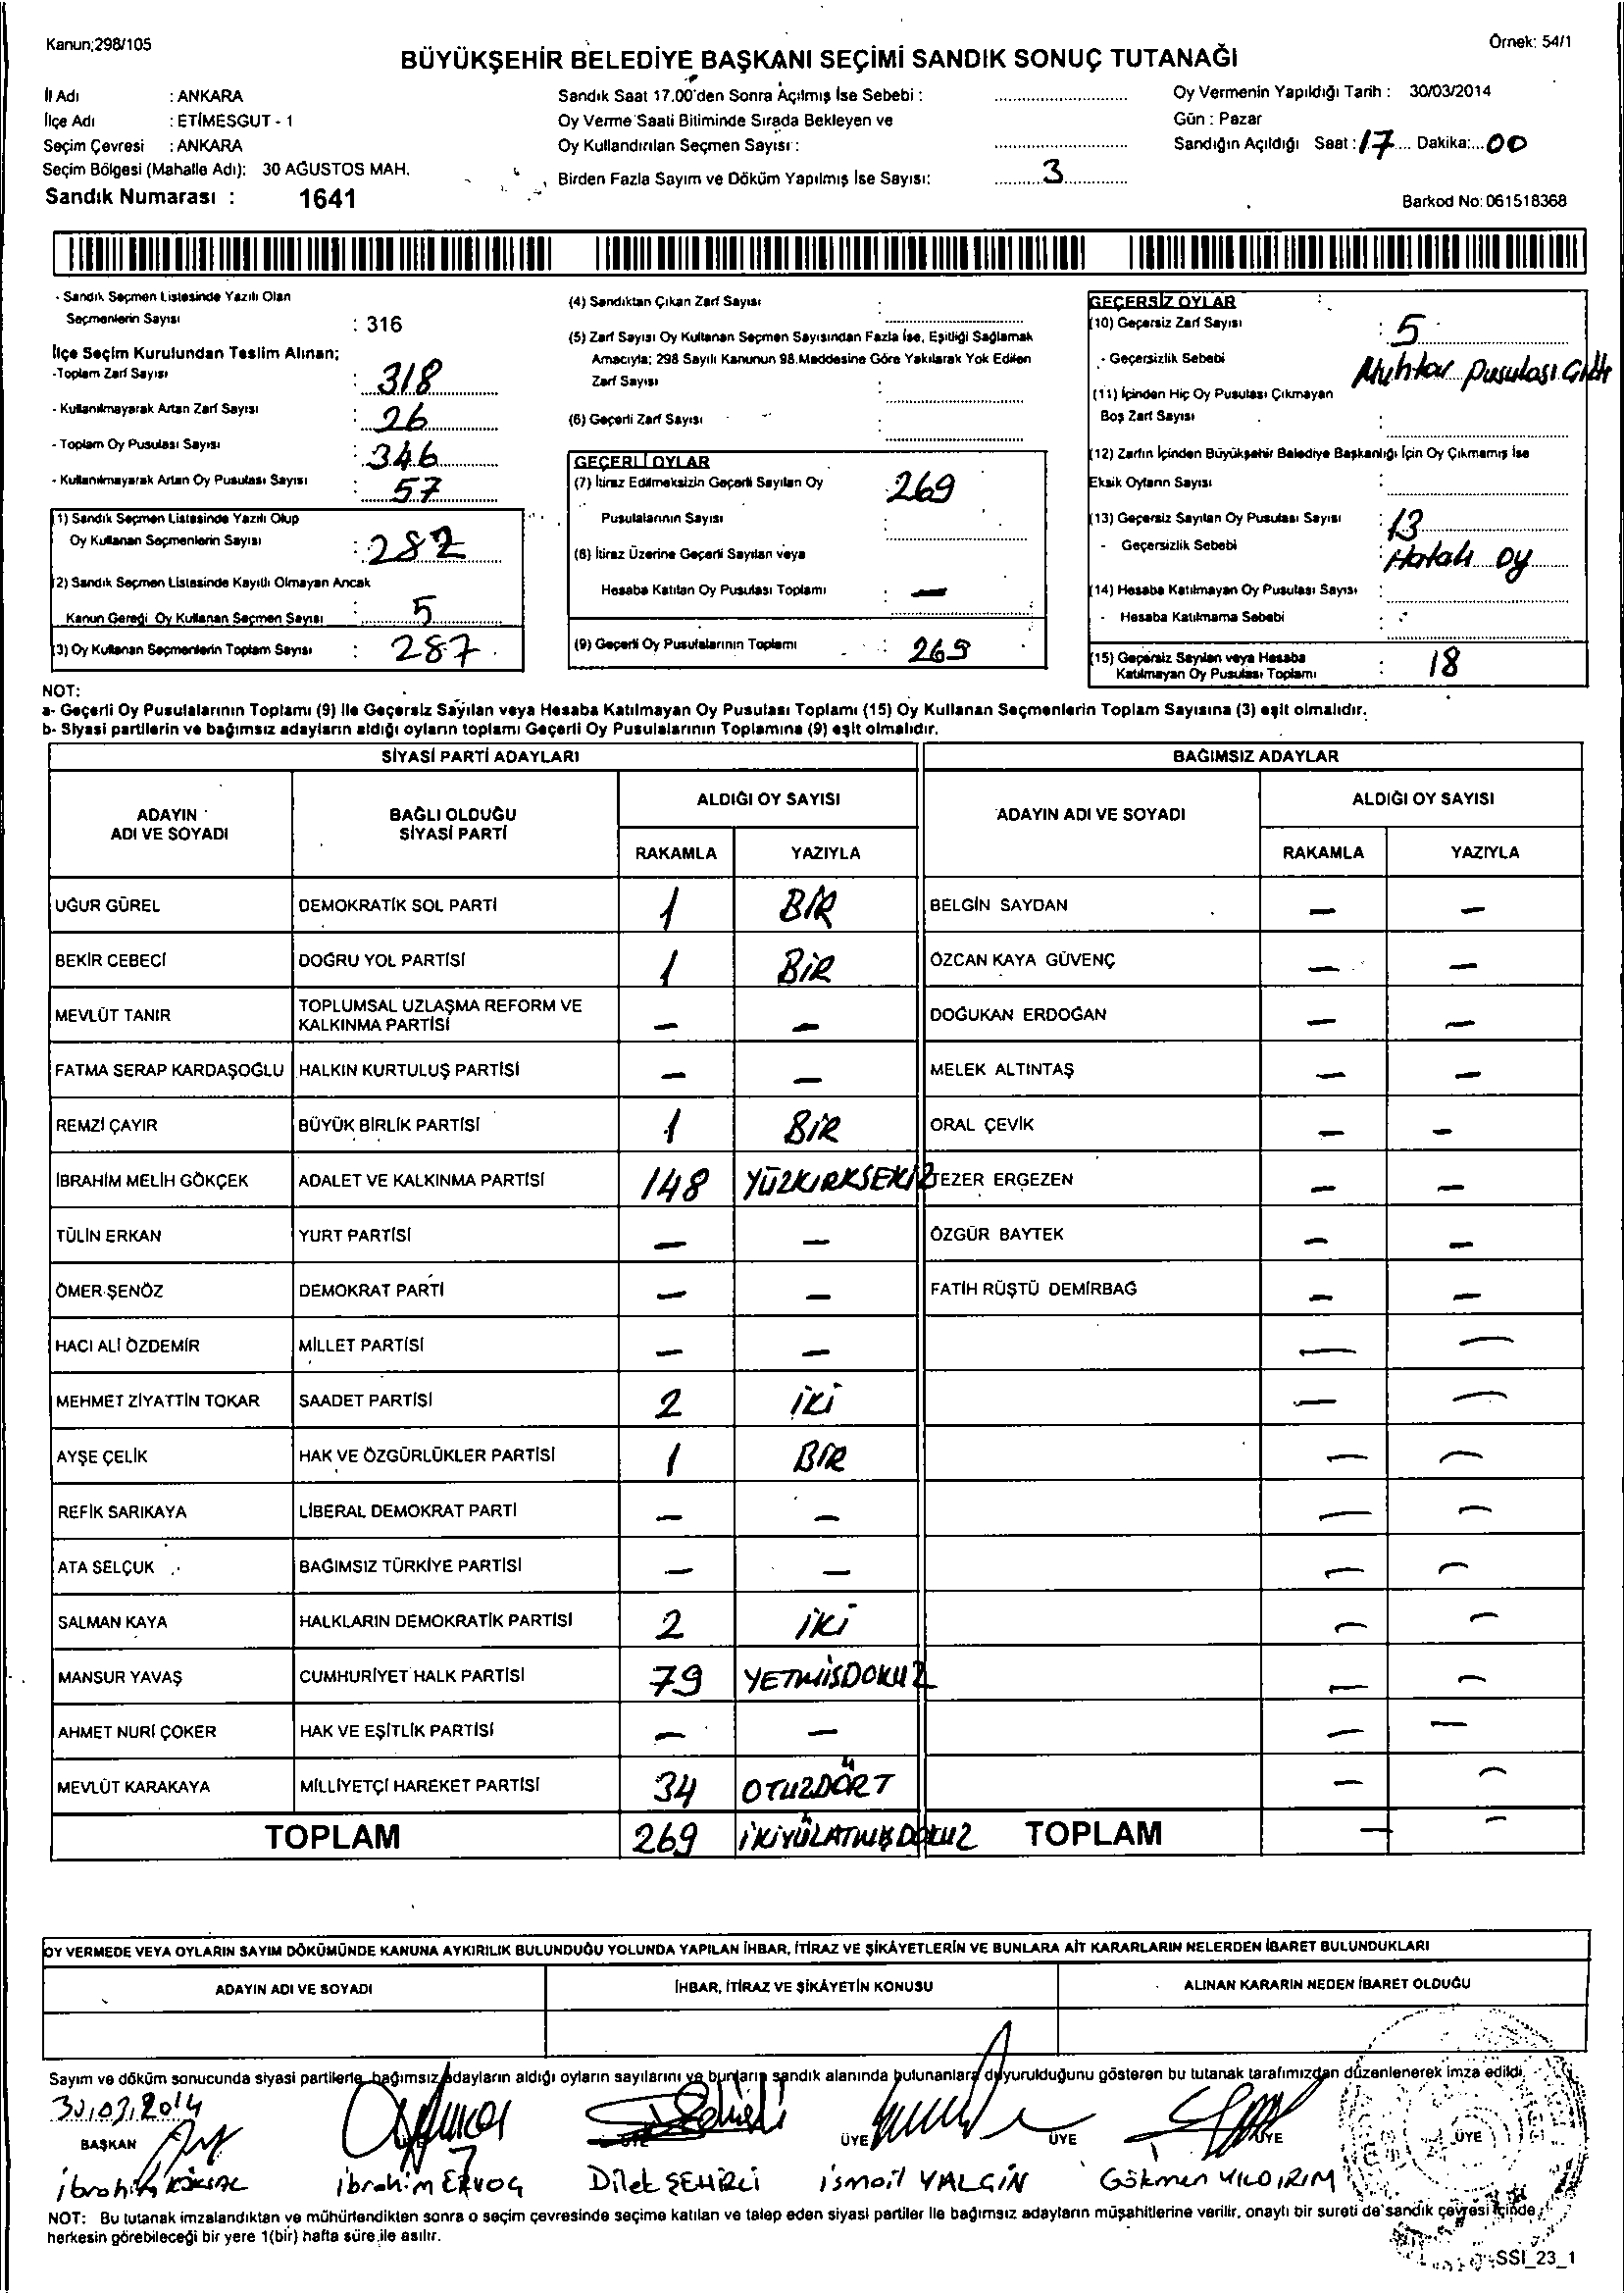 Kanun;298/105
Örnek: 54/1
BÜYÜKŞEHİR BELEDİYE BAŞKANI SEÇİMİ SANDIK SONUÇ TUTANAĞI
İl Adı : ANKARA
İlçe Adı : ETİMESGUT - 1
Seçim Çevresi : ANKARA
Seçim Bölgesi (Mahalle Adı): 30 AĞUSTOS MAH.
Sandık Numarası : 1641
Sandık Saat 17.00'den Sonra Açılmış İse Sebebi :
Oy Verme Saati Bitiminde Sırada Bekleyen ve
Oy Kullandırılan Seçmen Sayısı :
Birden Fazla Sayım ve Döküm Yapılmış İse Sayısı: 3
Oy Vermenin Yapıldığı Tarih : 30/03/2014
Gün : Pazar
Sandığın Açıldığı Saat : 17 Dakika: 00
Barkod No: 061518368
- Sandık Seçmen Listesinde Yazılı Olan
Seçmenlerin Sayısı : 316
İlçe Seçim Kurulundan Teslim Alınan;
-Toplam Zarf Sayısı : 318
- Kullanılmayarak Artan Zarf Sayısı : 26
- Toplam Oy Pusulası Sayısı : 346
- Kullanılmayarak Artan Oy Pusulası Sayısı : 57
(1) Sandık Seçmen Listesinde Yazılı Olup
Oy Kullanan Seçmenlerin Sayısı : 282
(2) Sandık Seçmen Listesinde Kayıtlı Olmayan Ancak
Kanun Gereği Oy Kullanan Seçmen Sayısı : 5
(3) Oy Kullanan Seçmenlerin Toplam Sayısı : 287
(4) Sandıktan Çıkan Zarf Sayısı :
(5) Zarf Sayısı Oy Kullanan Seçmen Sayısından Fazla İse, Eşitliği Sağlamak
Amacıyla; 298 Sayılı Kanunun 98.Maddesine Göre Yakılarak Yok Edilen
Zarf Sayısı :
(6) Geçerli Zarf Sayısı :
GEÇERLİ OYLAR
(7) İtiraz Edilmeksizin Geçerli Sayılan Oy 269
Pusulalarının Sayısı :
(8) İtiraz Üzerine Geçerli Sayılan veya
Hesaba Katılan Oy Pusulası Toplamı : —
(9) Geçerli Oy Pusulalarının Toplamı : 269
GEÇERSİZ OYLAR
(10) Geçersiz Zarf Sayısı : 5
- Geçersizlik Sebebi Muhtar Pusulası
(11) İçinden Hiç Oy Pusulası Çıkmayan
Boş Zarf Sayısı :
(12) Zarfın İçinden Büyükşehir Belediye Başkanlığı İçin Oy Çıkmamış İse
Eksik Oyların Sayısı :
(13) Geçersiz Sayılan Oy Pusulası Sayısı : 13
- Geçersizlik Sebebi : Hatalı oy
(14) Hesaba Katılmayan Oy Pusulası Sayısı :
- Hesaba Katılmama Sebebi :
(15) Geçersiz Sayılan veya Hesaba
Katılmayan Oy Pusulası Toplamı : 18
NOT:
a- Geçerli Oy Pusulalarının Toplamı (9) İle Geçersiz Sayılan veya Hesaba Katılmayan Oy Pusulası Toplamı (15) Oy Kullanan Seçmenlerin Toplam Sayısına (3) eşit olmalıdır.
b- Siyasi partilerin ve bağımsız adayların aldığı oyların toplamı Geçerli Oy Pusulalarının Toplamına (9) eşit olmalıdır.
SİYASİ PARTİ ADAYLARI
BAĞIMSIZ ADAYLAR
ADAYIN ADI VE SOYADI
BAĞLI OLDUĞU SİYASİ PARTİ
ALDIĞI OY SAYISI
RAKAMLA YAZIYLA
ADAYIN ADI VE SOYADI
ALDIĞI OY SAYISI
RAKAMLA YAZIYLA
UĞUR GÜREL DEMOKRATİK SOL PARTİ 1 BİR BELGİN SAYDAN — —
BEKİR CEBECİ DOĞRU YOL PARTİSİ 1 BİR ÖZCAN KAYA GÜVENÇ — —
MEVLÜT TANIR TOPLUMSAL UZLAŞMA REFORM VE KALKINMA PARTİSİ — — DOĞUKAN ERDOĞAN — —
FATMA SERAP KARDAŞOĞLU HALKIN KURTULUŞ PARTİSİ — — MELEK ALTINTAŞ — —
REMZİ ÇAYIR BÜYÜK BİRLİK PARTİSİ 1 BİR ORAL ÇEVİK — —
İBRAHİM MELİH GÖKÇEK ADALET VE KALKINMA PARTİSİ 148 YÜZKIRKSEKİZ TEZER ERGEZEN — —
TÜLİN ERKAN YURT PARTİSİ — — ÖZGÜR BAYTEK — —
ÖMER ŞENÖZ DEMOKRAT PARTİ — — FATİH RÜŞTÜ DEMİRBAĞ — —
HACI ALİ ÖZDEMİR MİLLET PARTİSİ — — — —
MEHMET ZİYATTİN TOKAR SAADET PARTİSİ 2 İKİ — —
AYŞE ÇELİK HAK VE ÖZGÜRLÜKLER PARTİSİ 1 BİR — —
REFİK SARIKAYA LİBERAL DEMOKRAT PARTİ — — — —
ATA SELÇUK BAĞIMSIZ TÜRKİYE PARTİSİ — — — —
SALMAN KAYA HALKLARIN DEMOKRATİK PARTİSİ 2 İKİ — —
MANSUR YAVAŞ CUMHURİYET HALK PARTİSİ 79 YETMİŞDOKUZ — —
AHMET NURİ ÇOKER HAK VE EŞİTLİK PARTİSİ — — — —
MEVLÜT KARAKAYA MİLLİYETÇİ HAREKET PARTİSİ 34 OTUZDÖRT — —
TOPLAM 269 İKİYÜZATMIŞDOKUZ TOPLAM — —
OY VERMEDE VEYA OYLARIN SAYIM DÖKÜMÜNDE KANUNA AYKIRILIK BULUNDUĞU YOLUNDA YAPILAN İHBAR, İTİRAZ VE ŞİKÂYETLERİN VE BUNLARA AİT KARARLARIN NELERDEN İBARET BULUNDUKLARI
ADAYIN ADI VE SOYADI İHBAR, İTİRAZ VE ŞİKÂYETİN KONUSU ALINAN KARARIN NEDEN İBARET OLDUĞU
Sayım ve döküm sonucunda siyasi partilerle bağımsız adayların aldığı oyların sayılarını ve bunların sandık alanında bulunanlara duyurulduğunu gösteren bu tutanak tarafımızdan düzenlenerek imza edildi.
30.03.2014
BAŞKAN ÜYE ÜYE ÜYE ÜYE ÜYE
İbrahim KÖKSAL İbrahim Dilek ŞEHİRLİ İsmail YALÇIN Gökmen YILDIRIM
NOT: Bu tutanak imzalandıktan ve mühürlendikten sonra o seçim çevresinde seçime katılan ve talep eden siyasi partiler ile bağımsız adayların müşahitlerine verilir, onaylı bir sureti de sandık çevresi içinde
herkesin görebileceği bir yere 1(bir) hafta süre ile asılır.
SSI_23_1